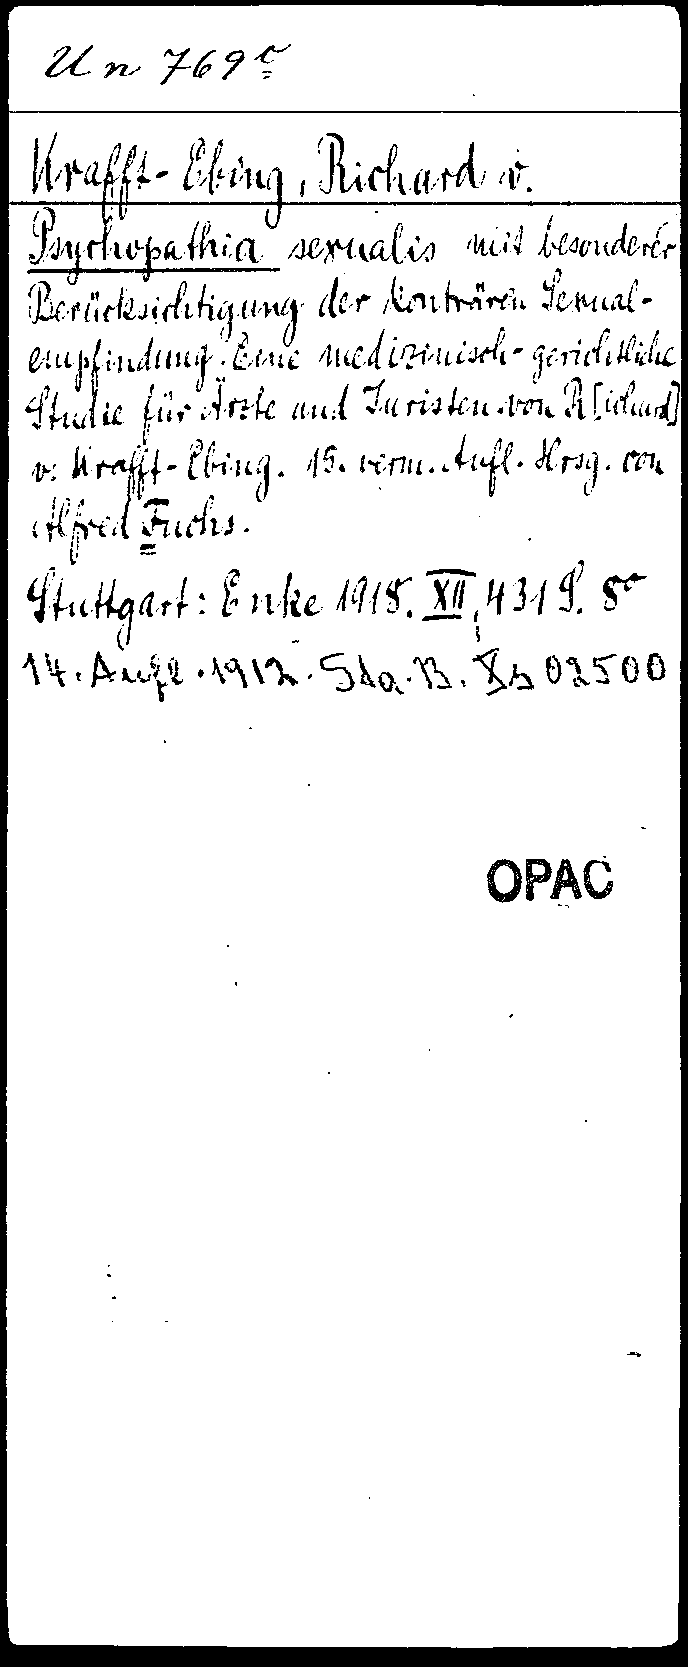 Un 769ᶜ
Krafft-Ebing, Richard v.
Psychopathia sexualis mit besonderer
Berücksichtigung der konträren Sexual-
empfindung. Eine medizinisch-gerichtliche
Studie für Ärzte und Juristen von R[ichard]
v. Krafft-Ebing. 15. verm. Aufl. Hrsg. von
Alfred Fuchs.
Stuttgart: Enke 1918. XII, 431 S. 8°
14. Aufl. 1912. Sda. B. Xb 02500
OPAC